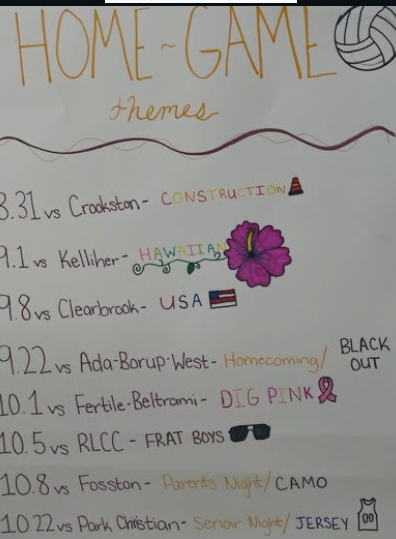 HOME-GAME
themes
8.31 vs Crookston- CONSTRUCTION
9.1 vs Kelliher- HAWAIIAN
9.8 vs Clearbrook- USA
9.22 vs Ada-Borup-West- Homecoming/ BLACK OUT
10.1 vs Fertile-Beltrami- DIG PINK
10.5 vs RLCC - FRAT BOYS
10.8 vs Fosston- Parents Night/ CAMO
10.22 vs Park Christian- Senior Night/ JERSEY 00